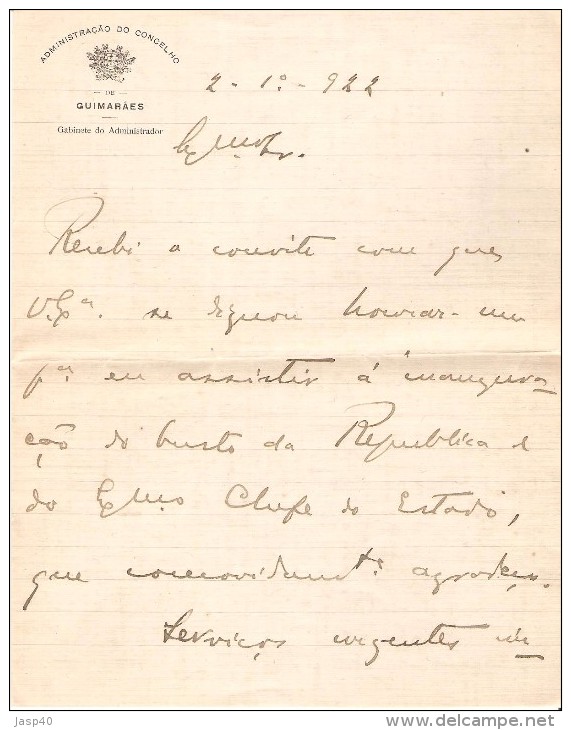 ADMINISTRAÇÃO DO CONCELHO
— DE —
GUIMARÃES
Gabinete do Administrador
2 - 1º - 922
Exmo Sr.
Recebi o convite com que
V. Exª. se dignou honrar-me
pª eu assistir á inaugura-
ção do busto da Republica e
do Exmo Chefe do Estado,
que comovidamte agradeço.
Serviços urgentes
Jasp40
www.delcampe.net